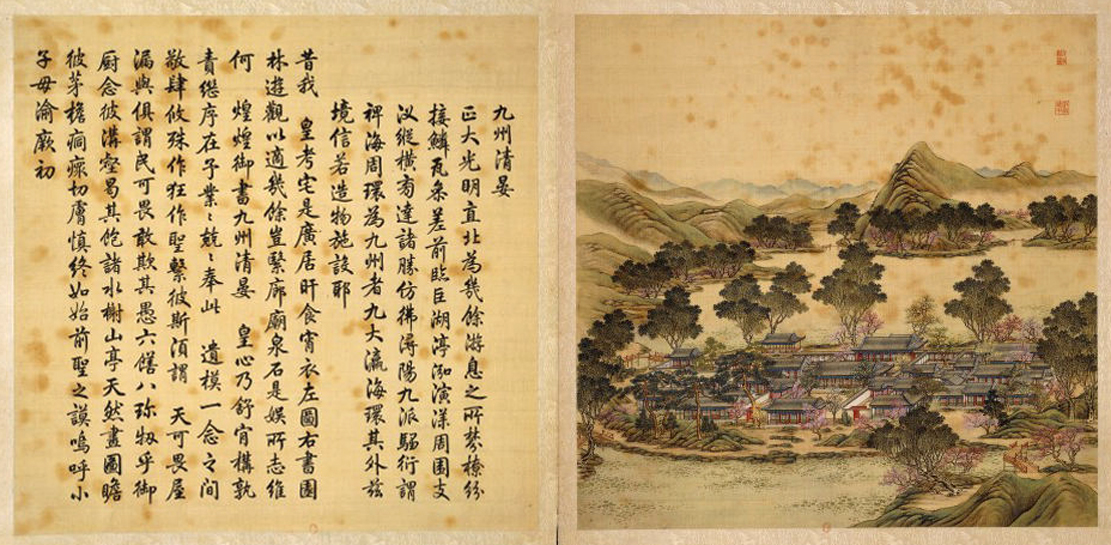 九州清晏
正大光明直北為幾餘游息之所棼橑紛
接鱗瓦參差前臨巨湖渟泓演漾周圍支
汊縱橫旁達諸勝仿彿潯陽九派騶衍謂
裨海周環為九州者九大瀛海環其外兹
境信若造物施設耶
昔我　皇考宅是廣居旰食宵衣左圖右書園
林遊觀以適幾餘豈繄廊廟泉石是娛所志維
何　煌煌御書九州清晏　皇心乃舒肯構孰
責繼序在予業〻兢〻奉此　遺模一念之間
敬肆攸殊作狂作聖繫彼斯須謂　天可畏屋
漏與俱謂民可畏敢欺其愚六饍八珍牣乎御
厨念彼溝壑曷其飽諸水榭山亭天然畫圖瞻
彼茅檐痌瘝切膚慎終如始前聖之謨嗚呼小
子毋渝厥初